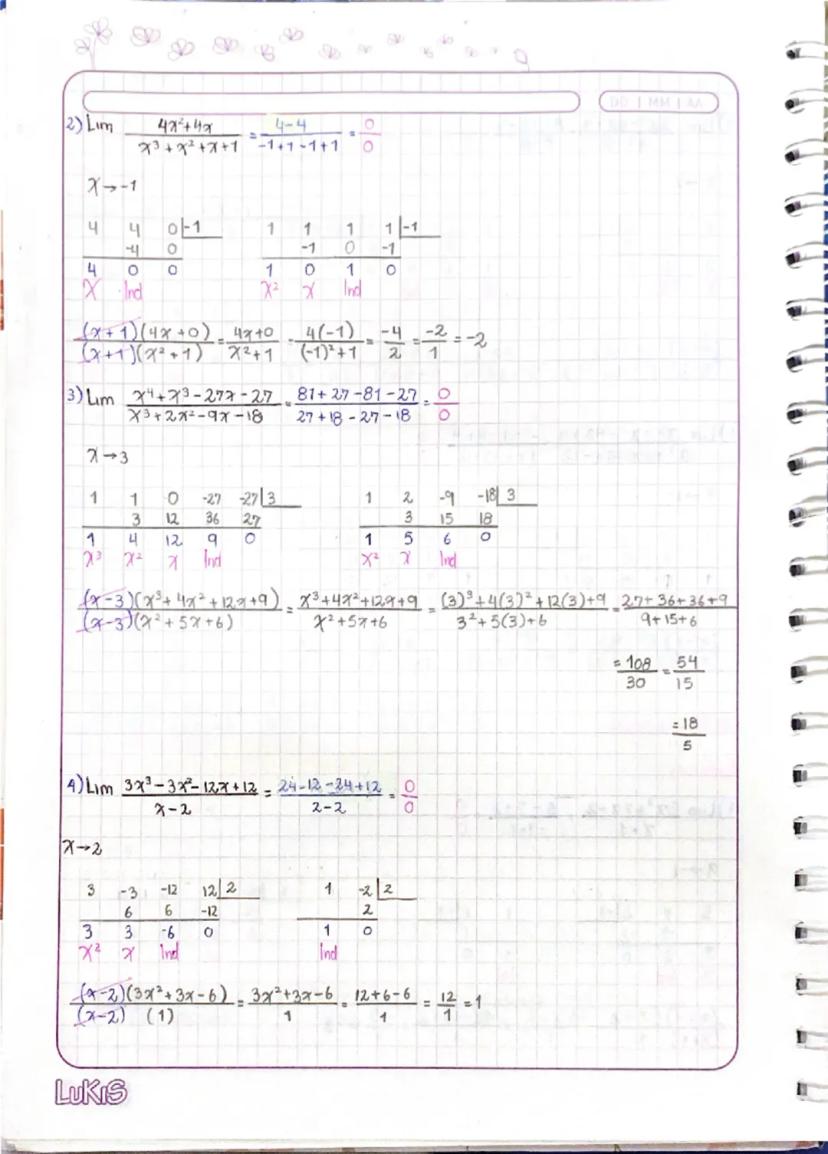 AA | MM | DD
2) Lim 4x²+4x / x³+x²+x+1 = 4-4 / -1+1-1+1 = 0/0
x→-1
4 4 0 |-1    1 1 1 1 |-1
-4 0    -1 0 -1
4 0 0    1 0 1 0
x Ind    x² x Ind
(x+1)(4x+0) / (x+1)(x²+1) = 4x+0 / x²+1 - 4(-1) / (-1)²+1 = -4/2 = -2/1 = -2
3) Lim x⁴+x³-27x-27 / x³+2x²-9x-18 = 81+27-81-27 / 27+18-27-18 = 0/0
x→3
1 1 0 -27 -27 |3    1 2 -9 -18 |3
3 12 36 27    3 15 18
1 4 12 9 0    1 5 6 0
x³ x² x Ind    x² x Ind
(x-3)(x³+4x²+12x+9) / (x-3)(x²+5x+6) = x³+4x²+12x+9 / x²+5x+6 = (3)³+4(3)²+12(3)+9 / 3²+5(3)+6 = 27+36+36+9 / 9+15+6
= 108/30 = 54/15
= 18/5
4) Lim 3x³-3x²-12x+12 / x-2 = 24-12-24+12 / 2-2 = 0/0
x→2
3 -3 -12 12 |2    1 -2 |2
6 6 -12    2
3 3 -6 0    1 0
x² x Ind    Ind
(x-2)(3x²+3x-6) / (x-2) (1) = 3x²+3x-6 / 1 = 12+6-6 / 1 = 12/1 = 1
LuKIS